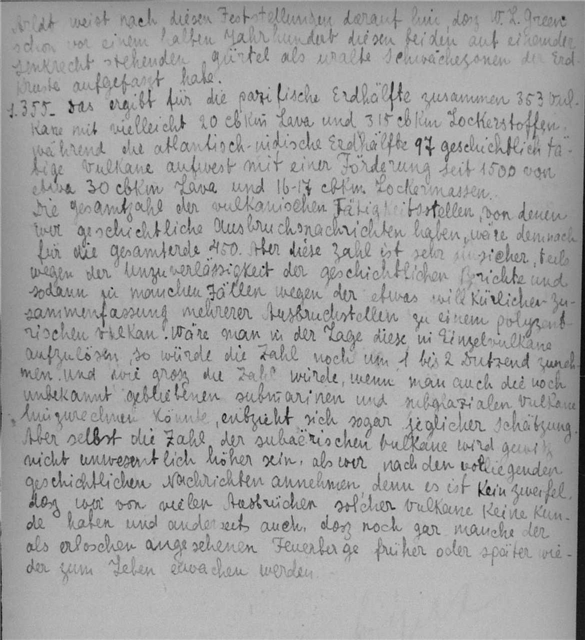 Arldt weist nach diesen Feststellungen darauf hin dasz W. L. Green
schon vor einem halben Jahrhundert diesen beiden auf einander
senkrecht stehenden gürtel als uralte Schwächezonen der Erd-
kruste aufgefaszt habe.
s. 355. Das ergibt für die pazifische Erdhälfte zusammen 353 Vul-
kane mit vielleicht 20 cbkm Lava und 315 cbkm Lockerstoffen,
während die atlantisch-indische Erdhälfte 97 geschichtlich tä-
tige Vulkane aufweist mit einer Förderung seit 1500 von
etwa 30 cbkm Lava und 16-17 cbkm Lockermassen.
Die gesamtzahl der vulkanischen Tätigkeitsstellen, von denen
wir geschichtliche Ausbruchsnachrichten haben, wäre demnach
für die gesamterde 450. Aber diese Zahl ist sehr unsicher, teils
wegen der Unzuverlässigkeit der geschichtlichen Berichte und
sodann in manchen Fällen wegen der etwas willkürlichen Zu-
sammenfassung mehrerer Ausbruchstellen zu einem polyzent-
rischen Vulkan. Wäre man in der Lage diese in Einzelvulkane
aufzulösen, so würde die Zahl noch um 1 bis 2 Dutzend zuneh-
men und wie grosz die Zahl würde, wenn man auch die noch
unbekannt gebliebenen submarinen und subglazialen Vulkane
hinzurechnen könnte, entzieht sich sogar jeglicher Schätzung.
Aber selbst die Zahl der subaërischen Vulkane wird gewisz
nicht unwesentlich höher sein, als wir nach den vorliegenden
geschichtlichen Nachrichten annehmen denn es ist kein zweifel,
dasz wir von vielen Ausbrüchen solcher Vulkane keine Kun-
de haben und anderseits auch, dasz noch gar manche der
als erloschen angesehenen Feuerberge früher oder später wie-
der zum Leben erwachen werden.